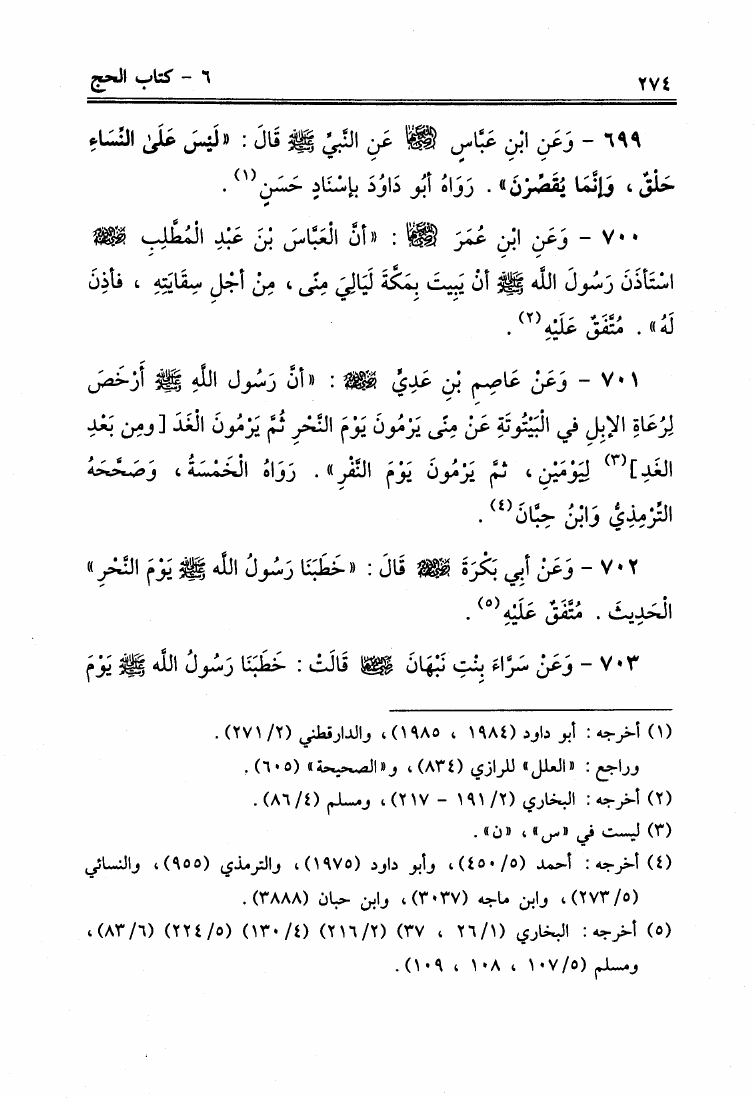 ٢٧٤
٦ - كتاب الحج
٦٩٩ - وَعَنِ ابْنِ عَبَّاسٍ رضي الله عنهما عَنِ النَّبِيِّ ﷺ قَالَ: «لَيْسَ عَلَى النِّسَاءِ
حَلْقٌ، وَإِنَّمَا يُقَصِّرْنَ». رَوَاهُ أَبُو دَاوُدَ بِإسْنَادٍ حَسَنٍ(١).
٧٠٠ - وَعَنِ ابْنِ عُمَرَ رضي الله عنهما: «أنَّ الْعَبَّاسَ بْنَ عَبْدِ الْمُطَّلِبِ رضي الله عنه
اسْتَأذَنَ رَسُولَ اللَّه ﷺ أنْ يَبِيتَ بِمَكَّةَ لَيَالِيَ مِنًى، مِنْ أجْلِ سِقَايَتِهِ، فأذِنَ
لَهُ». مُتَّفَقٌ عَلَيْهِ(٢).
٧٠١ - وَعَنْ عَاصِمِ بْنِ عَدِيٍّ رضي الله عنه: «أنَّ رَسُول اللَّهِ ﷺ أَرْخَصَ
لِرُعَاةِ الإبِلِ في الْبَيْتُوتَةِ عَنْ مِنًى يَرْمُونَ يَوْمَ النَّحْرِ ثُمَّ يَرْمُونَ الْغَدَ [ومِن بَعْدِ
الغَدِ](٣) لِيَوْمَيْنِ، ثمَّ يَرْمُونَ يَوْمَ النَّفْرِ». رَوَاهُ الْخَمْسَةُ، وَصَحَّحَهُ
التِّرْمِذِيُّ وَابْنُ حِبَّانَ(٤).
٧٠٢ - وَعَنْ أبِي بَكْرَةَ رضي الله عنه قَالَ: «خَطَبَنَا رَسُولُ اللَّه ﷺ يَوْمَ النَّحْرِ»
الْحَدِيثَ. مُتَّفَقٌ عَلَيْهِ(٥).
٧٠٣ - وَعَنْ سَرَّاءَ بِنْتِ نَبْهَانَ رضي الله عنها قَالَتْ: خَطَبَنَا رَسُولُ اللَّه ﷺ يَوْمَ
(١) أخرجه: أبو داود (١٩٨٤ ، ١٩٨٥)، والدارقطني (٢/ ٢٧١).
وراجع: «العلل» للرازي (٨٣٤)، و«الصحيحة» (٦٠٥).
(٢) أخرجه: البخاري (٢/ ١٩١ - ٢١٧)، ومسلم (٤/ ٨٦).
(٣) ليست في «س»، «ن».
(٤) أخرجه: أحمد (٥/ ٤٥٠)، وأبو داود (١٩٧٥)، والترمذي (٩٥٥)، والنسائي
(٥/ ٢٧٣)، وابن ماجه (٣٠٣٧)، وابن حبان (٣٨٨٨).
(٥) أخرجه: البخاري (١/ ٢٦ ، ٣٧) (٢/ ٢١٦) (٤/ ١٣٠) (٥/ ٢٢٤) (٦/ ٨٣)،
ومسلم (٥/ ١٠٧ ، ١٠٨ ، ١٠٩).